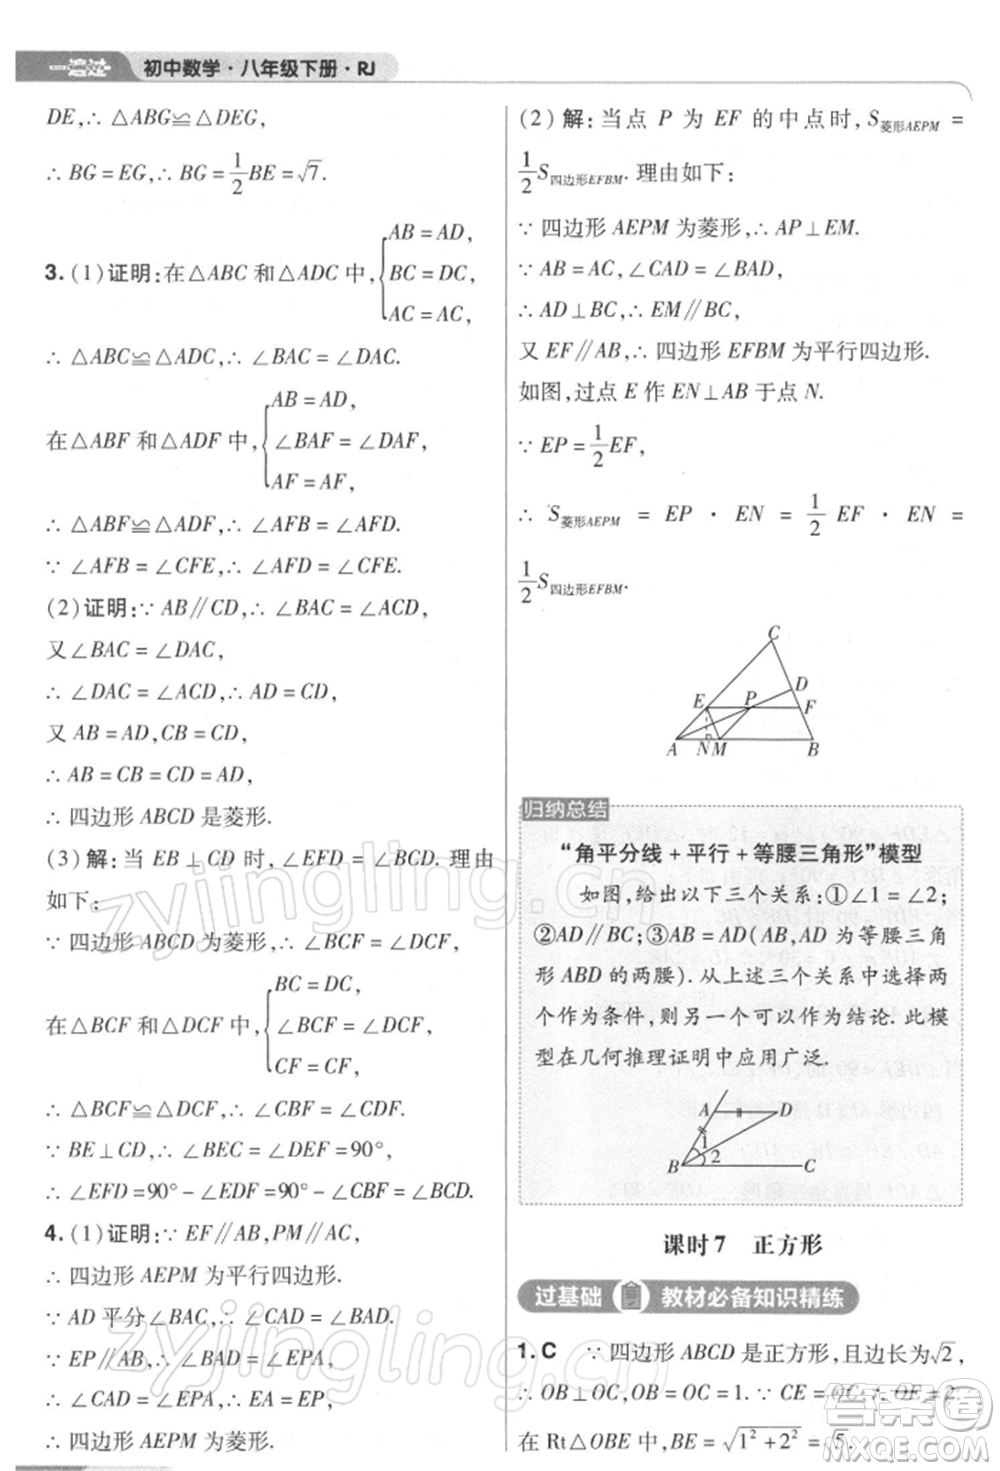 一遍过 初中数学·八年级下册·RJ
DE,∴ △ABG≌△DEG,
∴ BG = EG,∴ BG = 1/2 BE = √7.
3. (1)证明:在△ABC 和△ADC 中, { AB = AD, BC = DC, AC = AC,
∴ △ABC≌△ADC,∴ ∠BAC = ∠DAC.
在△ABF 和△ADF 中, { AB = AD, ∠BAF = ∠DAF, AF = AF,
∴ △ABF≌△ADF,∴ ∠AFB = ∠AFD.
∵ ∠AFB = ∠CFE,∴ ∠AFD = ∠CFE.
(2)证明:∵ AB∥CD,∴ ∠BAC = ∠ACD,
又∠BAC = ∠DAC,
∴ ∠DAC = ∠ACD,∴ AD = CD,
又 AB = AD,CB = CD,
∴ AB = CB = CD = AD,
∴ 四边形 ABCD 是菱形.
(3)解:当 EB⊥CD 时,∠EFD = ∠BCD. 理由
如下:
∵ 四边形 ABCD 为菱形,∴ ∠BCF = ∠DCF,
在△BCF 和△DCF 中, { BC = DC, ∠BCF = ∠DCF, CF = CF,
∴ △BCF≌△DCF,∴ ∠CBF = ∠CDF.
∵ BE⊥CD,∴ ∠BEC = ∠DEF = 90°,
∴ ∠EFD = 90° − ∠EDF = 90° − ∠CBF = ∠BCD.
4. (1)证明:∵ EF∥AB,PM∥AC,
∴ 四边形 AEPM 为平行四边形.
∵ AD 平分∠BAC,∴ ∠CAD = ∠BAD.
∵ EP∥AB,∴ ∠BAD = ∠EPA,
∴ ∠CAD = ∠EPA,∴ EA = EP,
∴ 四边形 AEPM 为菱形.
(2)解:当点 P 为 EF 的中点时,S菱形AEPM =
1/2 S四边形EFBM. 理由如下:
∵ 四边形 AEPM 为菱形,∴ AP⊥EM.
∵ AB = AC,∠CAD = ∠BAD,
∴ AD⊥BC,∴ EM∥BC,
又 EF∥AB,∴ 四边形 EFBM 为平行四边形.
如图,过点 E 作 EN⊥AB 于点 N.
∵ EP = 1/2 EF,
∴ S菱形AEPM = EP · EN = 1/2 EF · EN =
1/2 S四边形EFBM.
C
D
E P F
A N M B
归纳总结
“角平分线 + 平行 + 等腰三角形”模型
如图,给出以下三个关系:①∠1 = ∠2;
②AD∥BC;③AB = AD(AB,AD 为等腰三角
形 ABD 的两腰). 从上述三个关系中选择两
个作为条件,则另一个可以作为结论. 此模
型在几何推理证明中应用广泛.
A D
1
2
B C
课时7 正方形
过基础 教材必备知识精练
1. C ∵ 四边形 ABCD 是正方形,且边长为√2,
∴ OB⊥OC,OB = OC = 1. ∵ CE = OC = 1,∴ OE = 2.
在 Rt△OBE 中,BE = √(1² + 2²) = √5.
zyjingling.cn
zyjingling.cn
答案圈
MXQE.COM